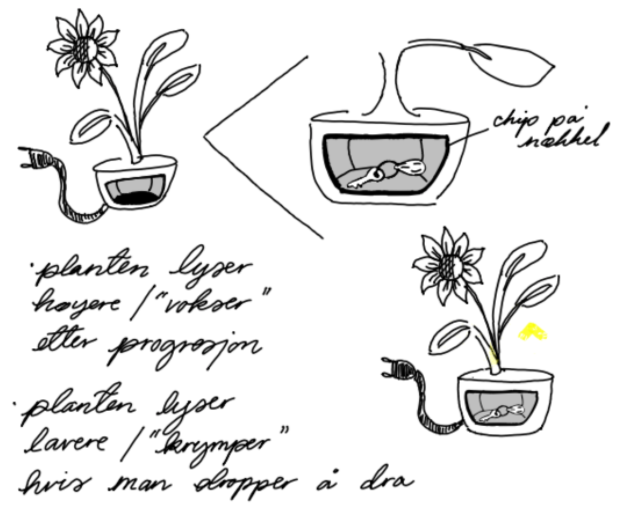 chip på
nøkkel
· planten lyser
høyere / "vokser"
etter progresjon
· planten lyser
lavere / "krymper"
hvis man dropper å dra